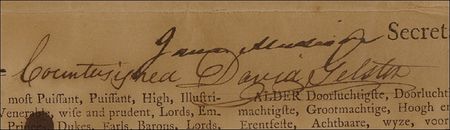 James Madison Secret
Countersigned David Gelston
most Puiſſant, Puiſſant, High, Illuſtri- ALDER Doorluchtigſte, Doorlucht
Venerable, wiſe and prudent, Lords, Em- machtigſte, Grootmachtige, Hoogh en
Princes, Dukes, Earls, Barons, Lords, Erentfeſte, Achtbaare, wyze, voor